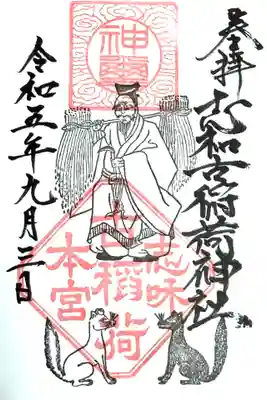 奉拝
志和古稲荷神社
神璽
志味
稲荷
本宮
令和五年九月三日